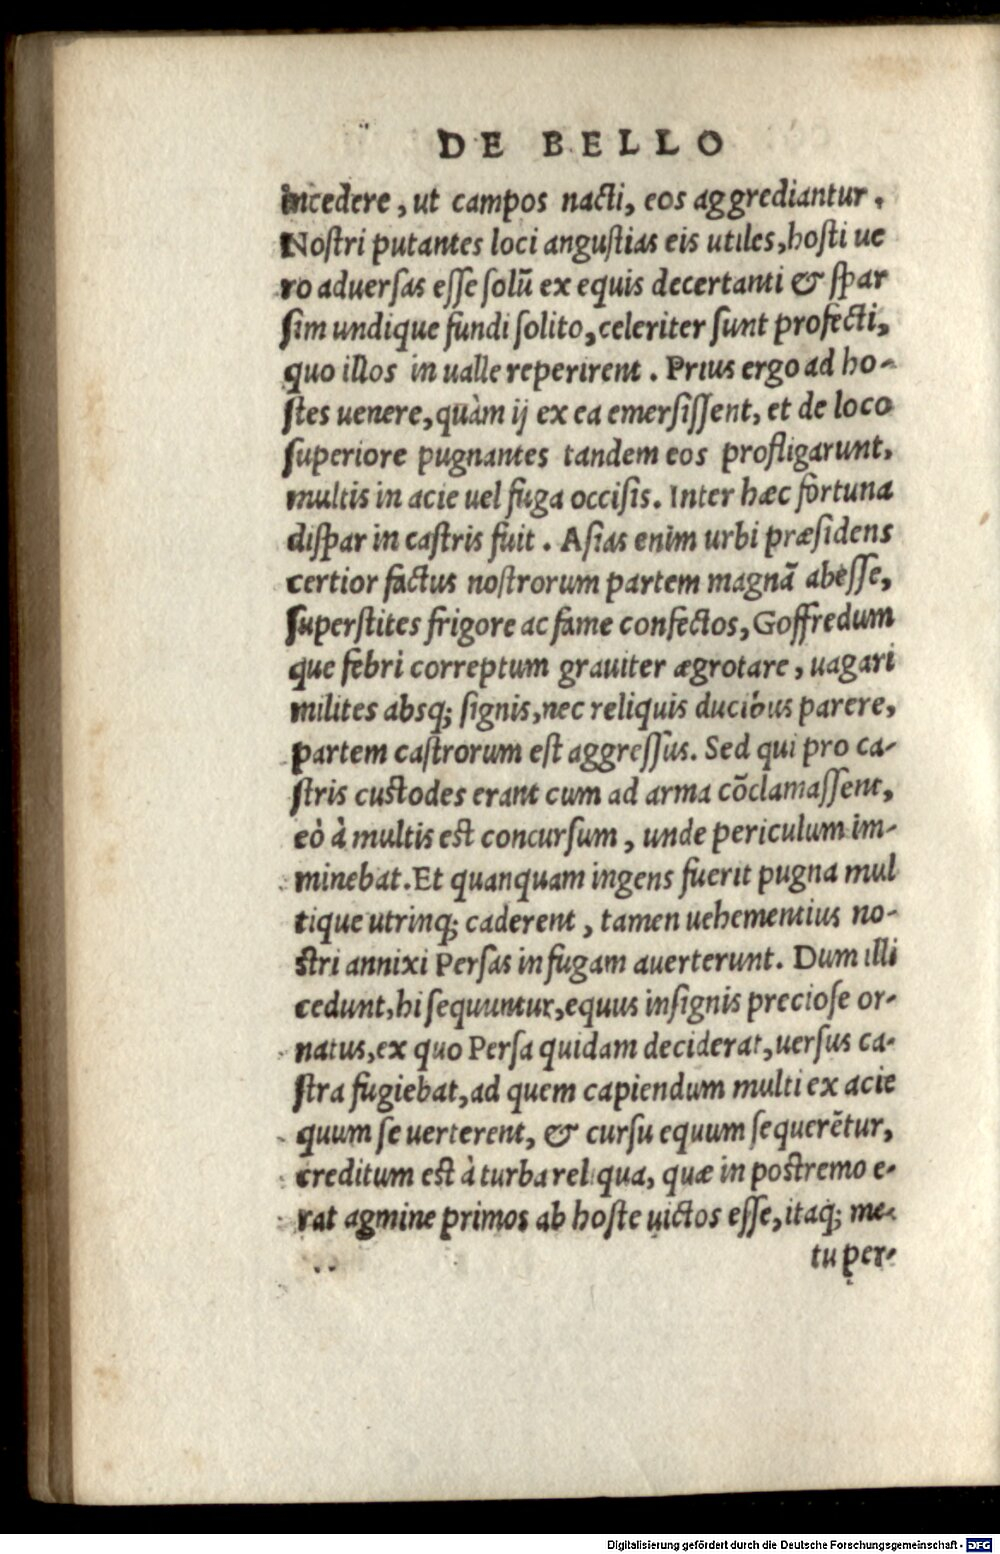 DE BELLO
incedere, ut campos nacti, eos aggrediantur.
Nostri putantes loci angustias eis utiles, hosti ue
ro aduersas esse solũ ex equis decertanti & spar
sim undique fundi solito, celeriter sunt profecti,
quo illos in ualle reperirent. Prius ergo ad ho-
stes uenere, quàm ij ex ea emersissent, et de loco
superiore pugnantes tandem eos profligarunt,
multis in acie uel fuga occisis. Inter hæc fortuna
dispar in castris fuit. Asias enim urbi præsidens
certior factus nostrorum partem magnã abesse,
superstites frigore ac fame confectos, Goffredum
que febri correptum grauiter ægrotare, uagari
milites absq; signis, nec reliquis ducibus parere,
partem castrorum est aggressus. Sed qui pro ca-
stris custodes erant cum ad arma cõclamassent,
eò à multis est concursum, unde periculum im-
minebat. Et quanquam ingens fuerit pugna mul
tique utrinq; caderent, tamen uehementius no-
stri annixi Persas in fugam auerterunt. Dum illi
cedunt, hi sequuntur, equus insignis preciose or-
natus, ex quo Persa quidam deciderat, uersus ca-
stra fugiebat, ad quem capiendum multi ex acie
quum se uerterent, & cursu equum sequerẽtur,
creditum est à turba reliqua, quæ in postremo e-
rat agmine primos ab hoste uictos esse, itaq; me-
tu per-
Digitalisierung gefördert durch die Deutsche Forschungsgemeinschaft - DFG